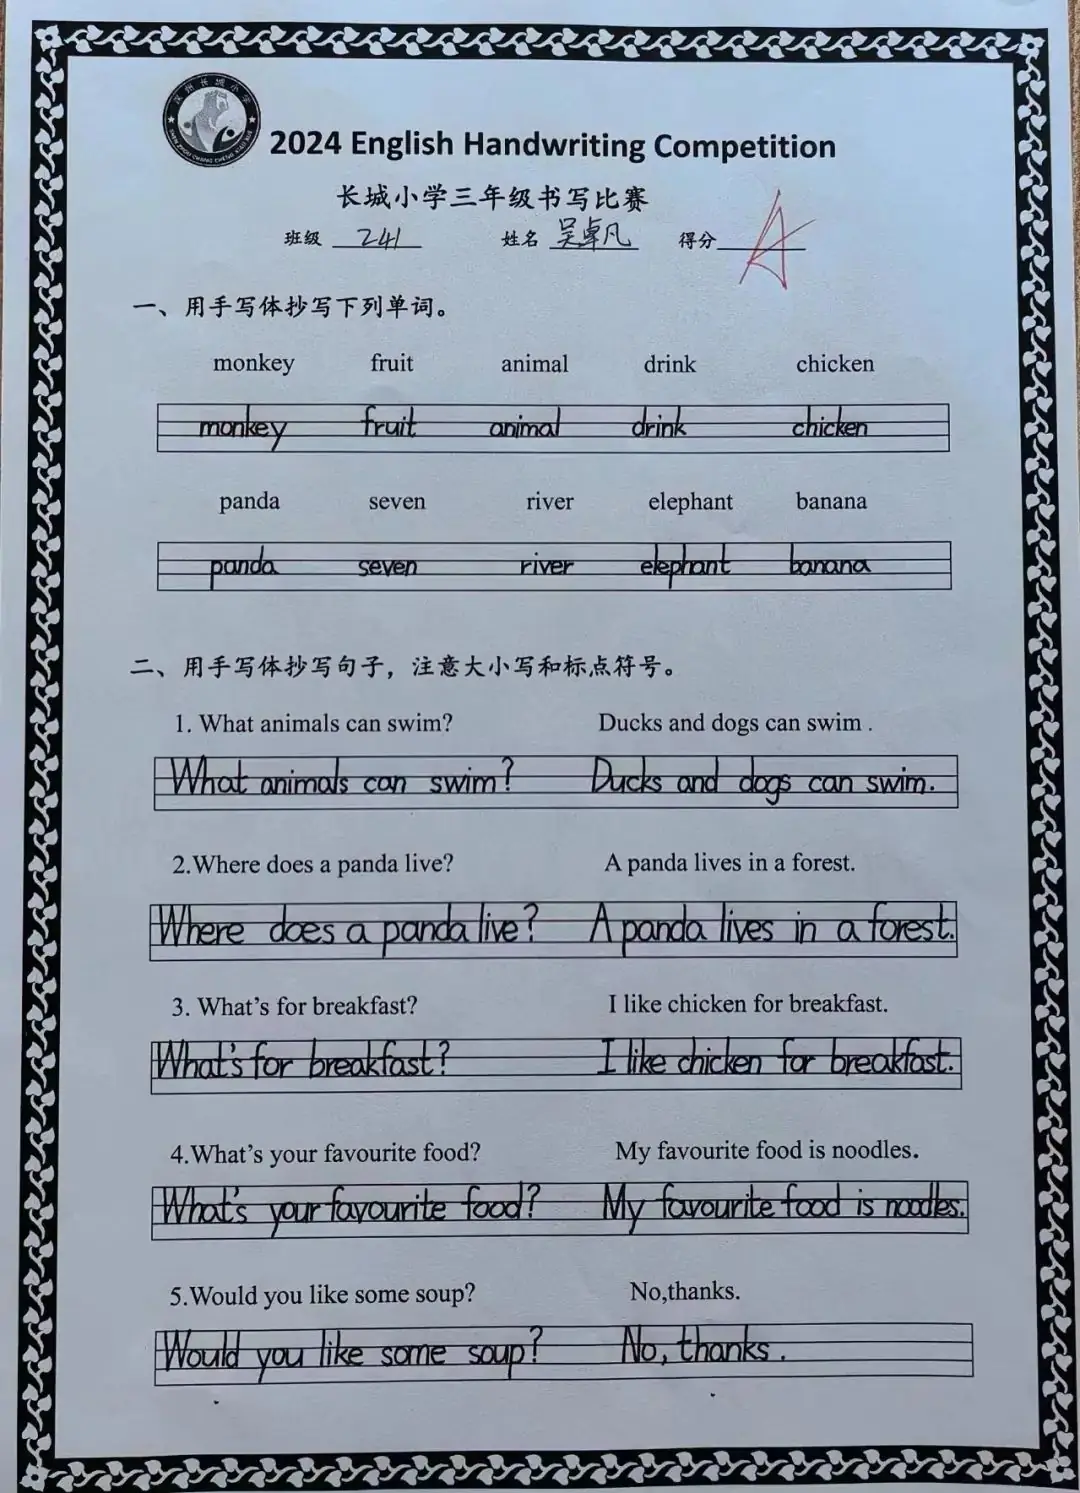 深州长城小学
SHEN ZHOU CHANG CHENG XIAO XUE
2024 English Handwriting Competition
长城小学三年级书写比赛
班级 241 姓名 吴卓凡 得分 A
一、用手写体抄写下列单词。
monkey fruit animal drink chicken
monkey fruit animal drink chicken
panda seven river elephant banana
panda seven river elephant banana
二、用手写体抄写句子，注意大小写和标点符号。
1. What animals can swim? Ducks and dogs can swim .
What animals can swim? Ducks and dogs can swim.
2.Where does a panda live? A panda lives in a forest.
Where does a panda live? A panda lives in a forest.
3. What's for breakfast? I like chicken for breakfast.
What's for breakfast? I like chicken for breakfast.
4.What's your favourite food? My favourite food is noodles.
What's your favourite food? My favourite food is noodles.
5.Would you like some soup? No,thanks.
Would you like some soup? No, thanks .